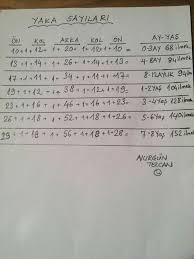 YAKA SAYILARI
ÖN KOL ARKA KOL ÖN AY-YAŞ
10+1+12+1+20+1+12+1+10= 0-3AY 68 ilmek
13+1+14+1+26+1+14+1+13= 4-8AY 84 ilmek
17+1+11+1+34+1+11+1+17= 8-12AYLIK 94 ilm
19+1+12+1+38+1+12+1+19= 1-2YAŞ ilmek
23+1+16+1+46+1+16+1+23= 3-4YAŞ 128 ilm
26+1+18+1+52+1+18+1+26= 5-6YAŞ ilmek
+1+18+1+56+1+18+1+28= 7-8YAŞ 152 ilmek
NURGÜN
TERCAN